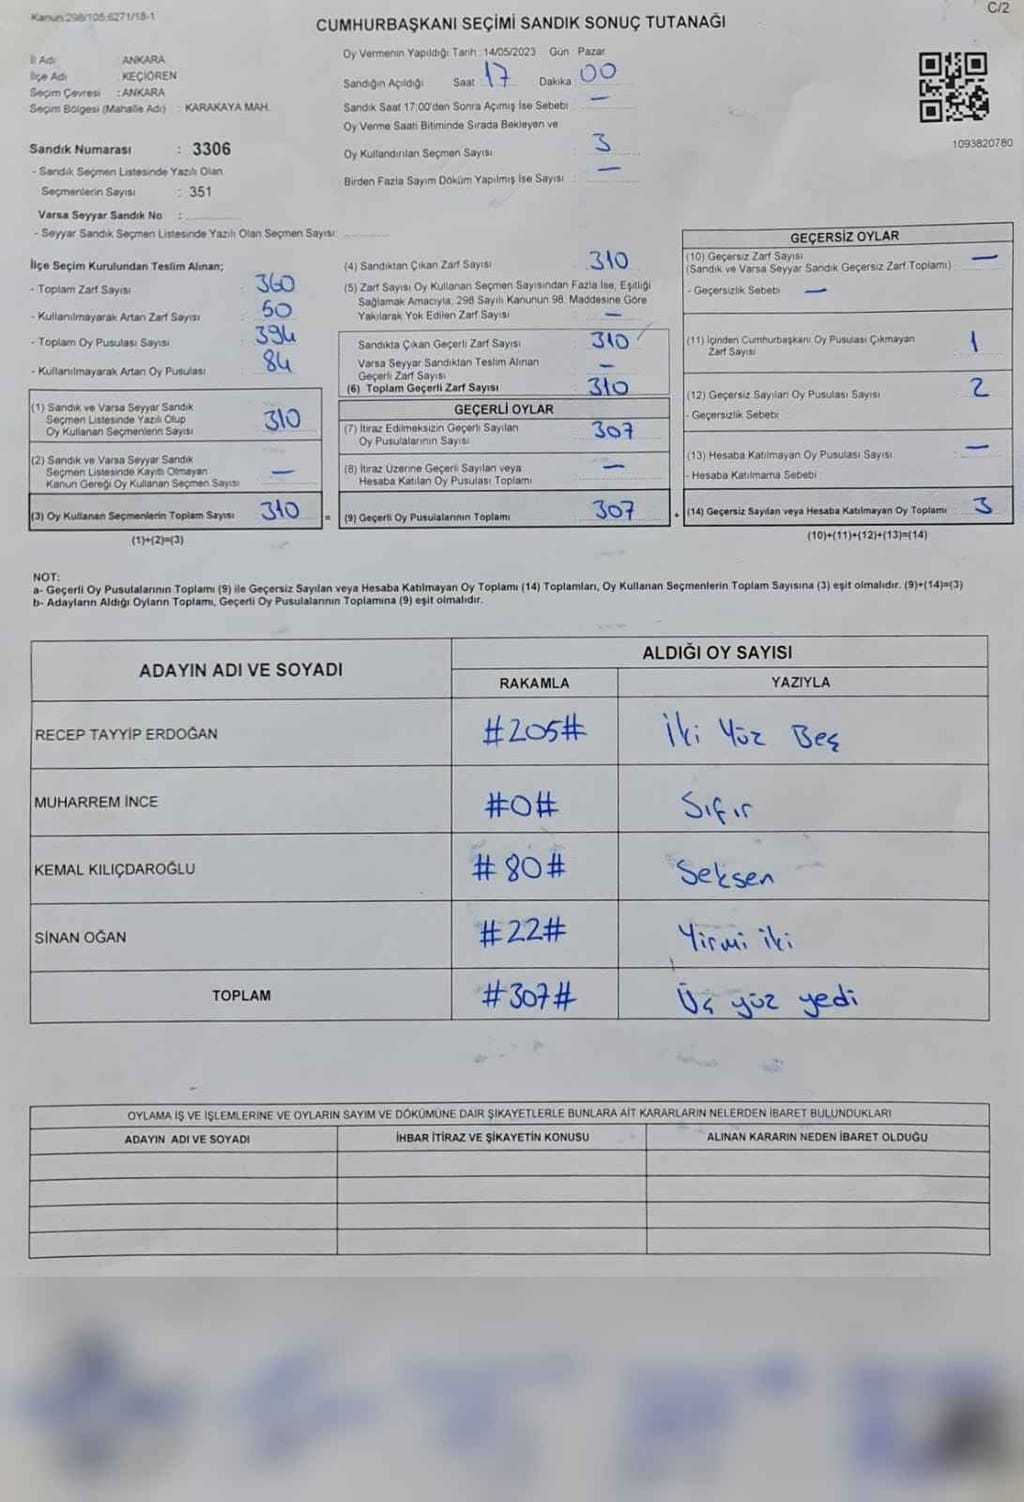 Kanun:298/105;6271/18-1
C/2
CUMHURBAŞKANI SEÇİMİ SANDIK SONUÇ TUTANAĞI
İl Adı : ANKARA
İlçe Adı : KEÇİÖREN
Seçim Çevresi : ANKARA
Seçim Bölgesi (Mahalle Adı) : KARAKAYA MAH.
Sandık Numarası : 3306
- Sandık Seçmen Listesinde Yazılı Olan
Seçmenlerin Sayısı : 351
Varsa Seyyar Sandık No :
- Seyyar Sandık Seçmen Listesinde Yazılı Olan Seçmen Sayısı:
Oy Vermenin Yapıldığı Tarih :14/05/2023 Gün : Pazar
Sandığın Açıldığı Saat : 17 Dakika : 00
Sandık Saat 17:00'den Sonra Açımış İse Sebebi : —
Oy Verme Saati Bitiminde Sırada Bekleyen ve
Oy Kullandırılan Seçmen Sayısı : 3
Birden Fazla Sayım Döküm Yapılmış İse Sayısı : —
1093820780
İlçe Seçim Kurulundan Teslim Alınan;
- Toplam Zarf Sayısı : 360
- Kullanılmayarak Artan Zarf Sayısı : 50
- Toplam Oy Pusulası Sayısı : 394
- Kullanılmayarak Artan Oy Pusulası : 84
(1) Sandık ve Varsa Seyyar Sandık
Seçmen Listesinde Yazılı Olup
Oy Kullanan Seçmenlerin Sayısı : 310
(2) Sandık ve Varsa Seyyar Sandık
Seçmen Listesinde Kayıtlı Olmayan
Kanun Gereği Oy Kullanan Seçmen Sayısı : —
(3) Oy Kullanan Seçmenlerin Toplam Sayısı : 310
(1)+(2)=(3)
(4) Sandıktan Çıkan Zarf Sayısı : 310
(5) Zarf Sayısı Oy Kullanan Seçmen Sayısından Fazla İse, Eşitliği
Sağlamak Amacıyla, 298 Sayılı Kanunun 98. Maddesine Göre
Yakılarak Yok Edilen Zarf Sayısı : —
Sandıkta Çıkan Geçerli Zarf Sayısı : 310
Varsa Seyyar Sandıktan Teslim Alınan
Geçerli Zarf Sayısı : —
(6) Toplam Geçerli Zarf Sayısı : 310
GEÇERLİ OYLAR
(7) İtiraz Edilmeksizin Geçerli Sayılan
Oy Pusulalarının Sayısı : 307
(8) İtiraz Üzerine Geçerli Sayılan veya
Hesaba Katılan Oy Pusulası Toplamı : —
= (9) Geçerli Oy Pusulalarının Toplamı : 307
GEÇERSİZ OYLAR
(10) Geçersiz Zarf Sayısı
(Sandık ve Varsa Seyyar Sandık Geçersiz Zarf Toplamı) : —
- Geçersizlik Sebebi : —
(11) İçinden Cumhurbaşkanı Oy Pusulası Çıkmayan
Zarf Sayısı : 1
(12) Geçersiz Sayılan Oy Pusulası Sayısı : 2
- Geçersizlik Sebebi :
(13) Hesaba Katılmayan Oy Pusulası Sayısı : —
- Hesaba Katılmama Sebebi :
+ (14) Geçersiz Sayılan veya Hesaba Katılmayan Oy Toplamı : 3
(10)+(11)+(12)+(13)=(14)
NOT:
a- Geçerli Oy Pusulalarının Toplamı (9) ile Geçersiz Sayılan veya Hesaba Katılmayan Oy Toplamı (14) Toplamları, Oy Kullanan Seçmenlerin Toplam Sayısına (3) eşit olmalıdır. (9)+(14)=(3)
b- Adayların Aldığı Oyların Toplamı, Geçerli Oy Pusulalarının Toplamına (9) eşit olmalıdır.
ADAYIN ADI VE SOYADI
ALDIĞI OY SAYISI
RAKAMLA YAZIYLA
RECEP TAYYİP ERDOĞAN #205# İki Yüz Beş
MUHARREM İNCE #0# Sıfır
KEMAL KILIÇDAROĞLU #80# Seksen
SİNAN OĞAN #22# Yirmi iki
TOPLAM #307# Üç yüz yedi
OYLAMA İŞ VE İŞLEMLERİNE VE OYLARIN SAYIM VE DÖKÜMÜNE DAİR ŞİKAYETLERLE BUNLARA AİT KARARLARIN NELERDEN İBARET BULUNDUKLARI
ADAYIN ADI VE SOYADI İHBAR İTİRAZ VE ŞİKAYETİN KONUSU ALINAN KARARIN NEDEN İBARET OLDUĞU